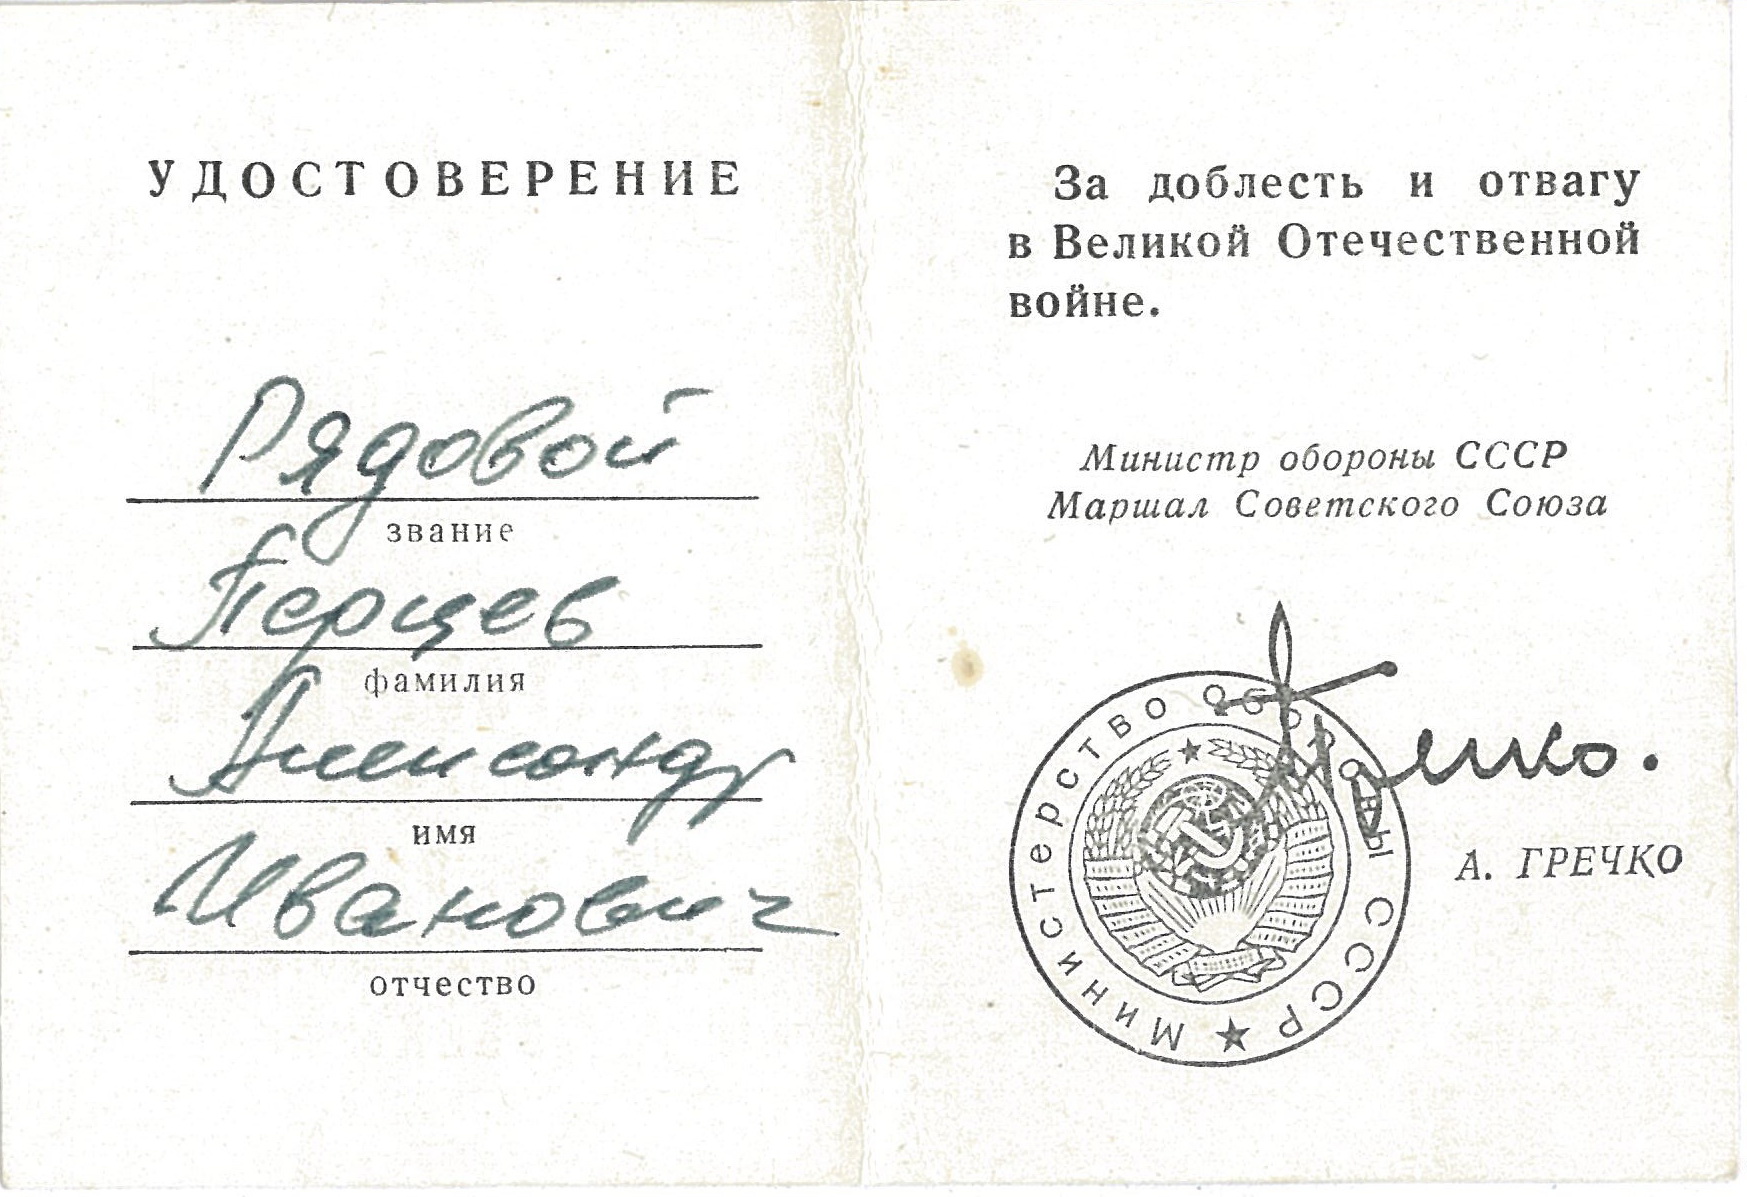 УДОСТОВЕРЕНИЕ
Рядовой
звание
Перцев
фамилия
Александр
имя
Иванович
отчество
За доблесть и отвагу
в Великой Отечественной
войне.
Министр обороны СССР
Маршал Советского Союза
Гречко.
Министерство Обороны СССР
А. ГРЕЧКО